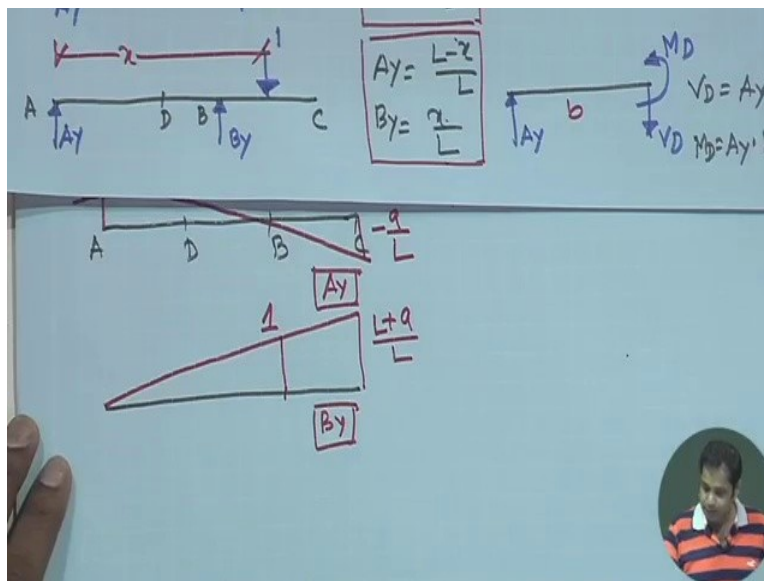 x
1
A
D
B
C
Ay
By
Ay = L-x / L
By = x / L
b
Ay
MD
VD
VD = Ay
MD = Ay.
A
D
B
C
-a/L
Ay
1
L+a / L
By